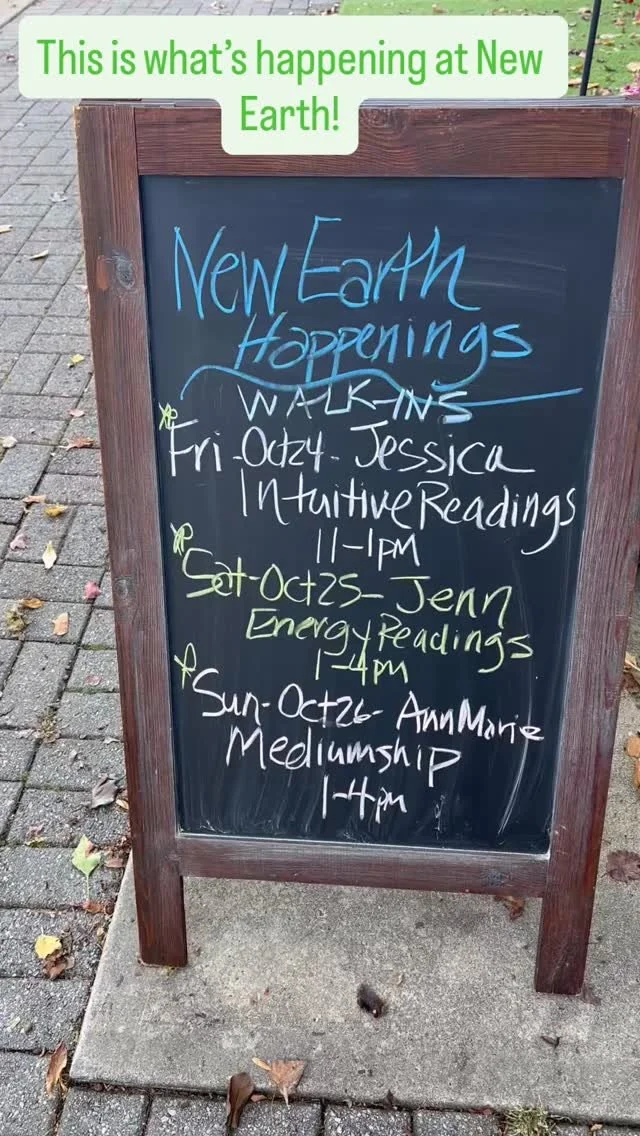 This is what's happening at New
Earth!
New Earth
Happenings
WALK-INS
Fri-Oct24-Jessica
Intuitive Readings
11-1pm
Sat-Oct25-Jenn
Energy Readings
1-4pm
Sun-Oct26-AnnMarie
Mediumship
1-4pm